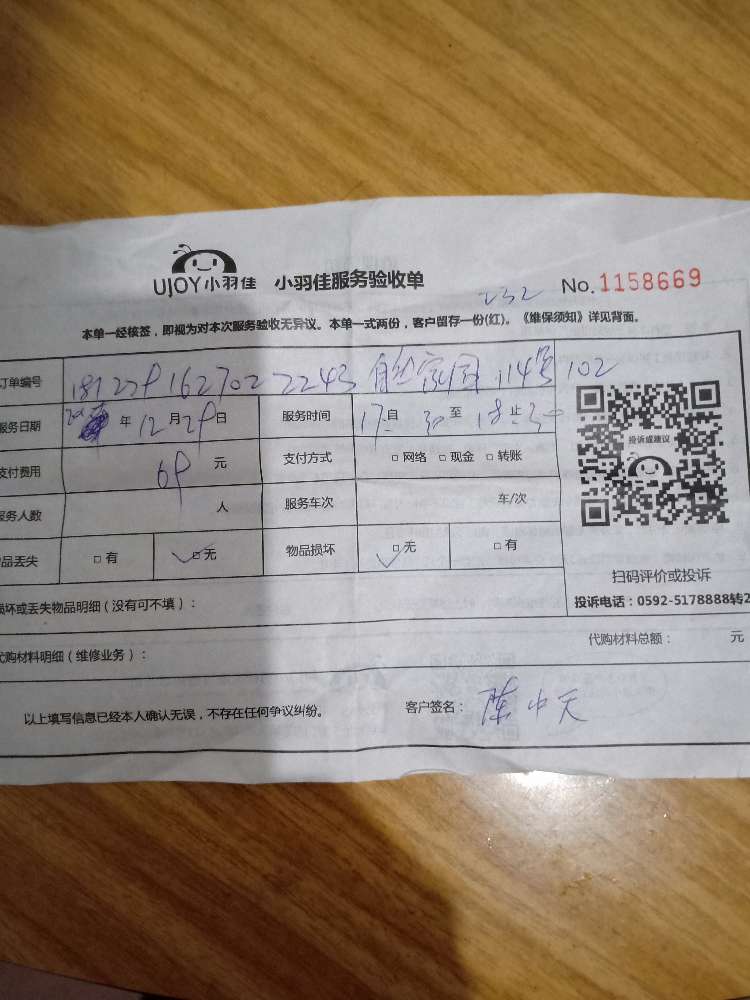 UJOY小羽佳 小羽佳服务验收单 No.1158669
232
本单一经核签，即视为对本次服务验收无异议。本单一式两份，客户留存一份(红)。《维保须知》详见背面。
订单编号 2243 114号 102
服务日期 年 12月29日 服务时间 17自30至18止30
支付费用 69 元 支付方式 □网络 □现金 □转账
服务人数 人 服务车次 车/次
品丢失 □有 □无 物品损坏 □无 □有
投诉或建议
扫码评价或投诉
投诉电话：0592-5178888转2
损坏或丢失物品明细（没有可不填）：
代购材料明细（维修业务）： 代购材料总额： 元
以上填写信息已经本人确认无误，不存在任何争议纠纷。 客户签名：陈中天